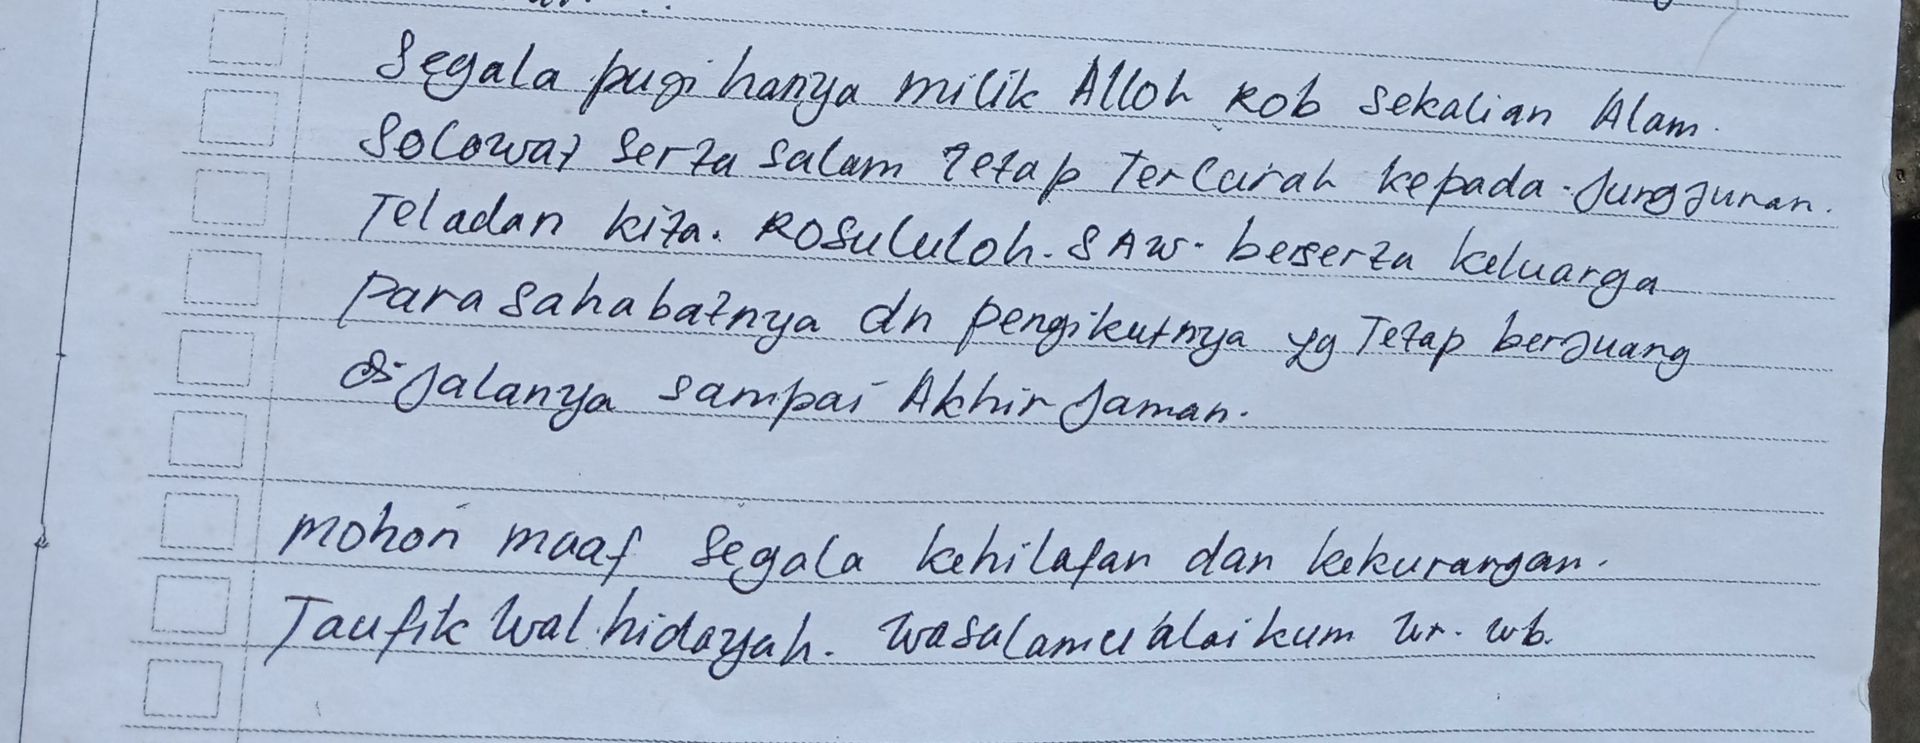 Segala puji hanya milik Alloh Rob Sekalian Alam.
Solowat Serta Salam Tetap Tercurah kepada Junggunan.
Teladan kita. Rosululoh. SAW. beserta keluarga
para Sahabatnya dn pengikutnya yg Tetap berjuang
di Jalanya Sampai Akhir Jaman.
mohon maaf Segala kehilafan dan kekurangan.
Taufik wal hidayah. wasalamu'alaikum wr. wb.